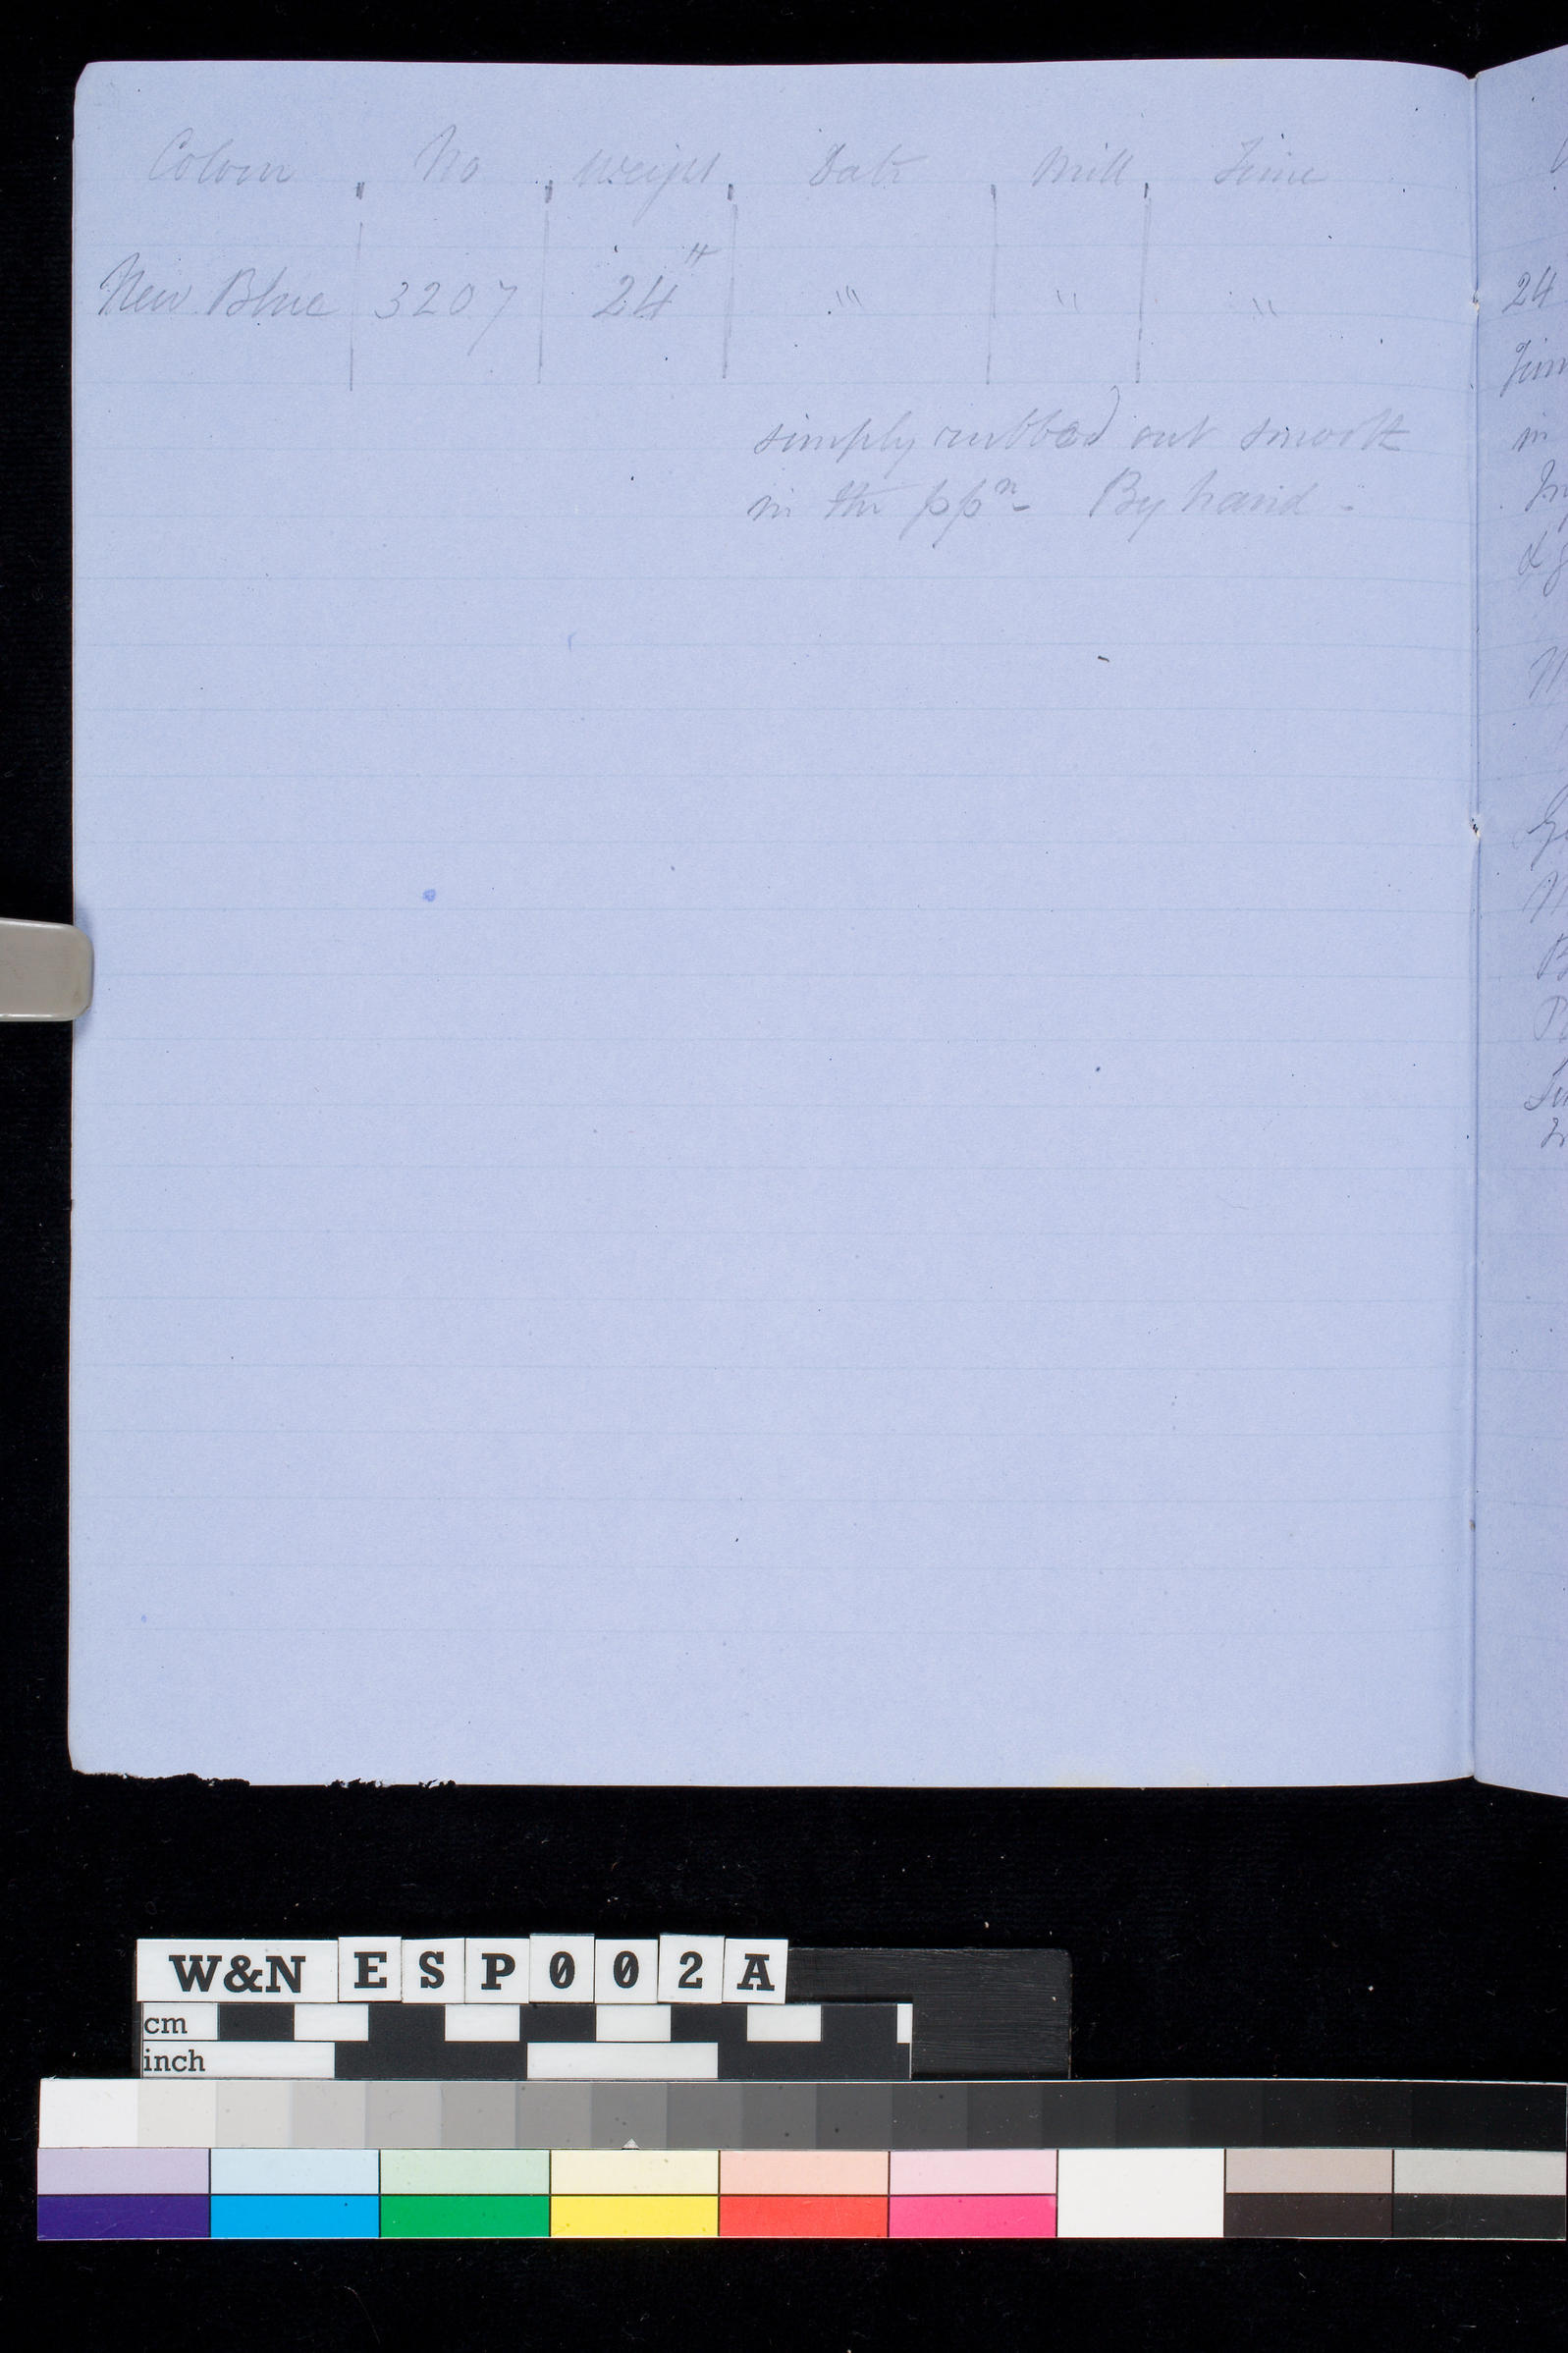 Colour No Weight Date Mill Time
New Blue 3207 24 " " "
simply rubbed out smooth
in the ppn - By hand -
24
W&N ESP002A
cm
inch